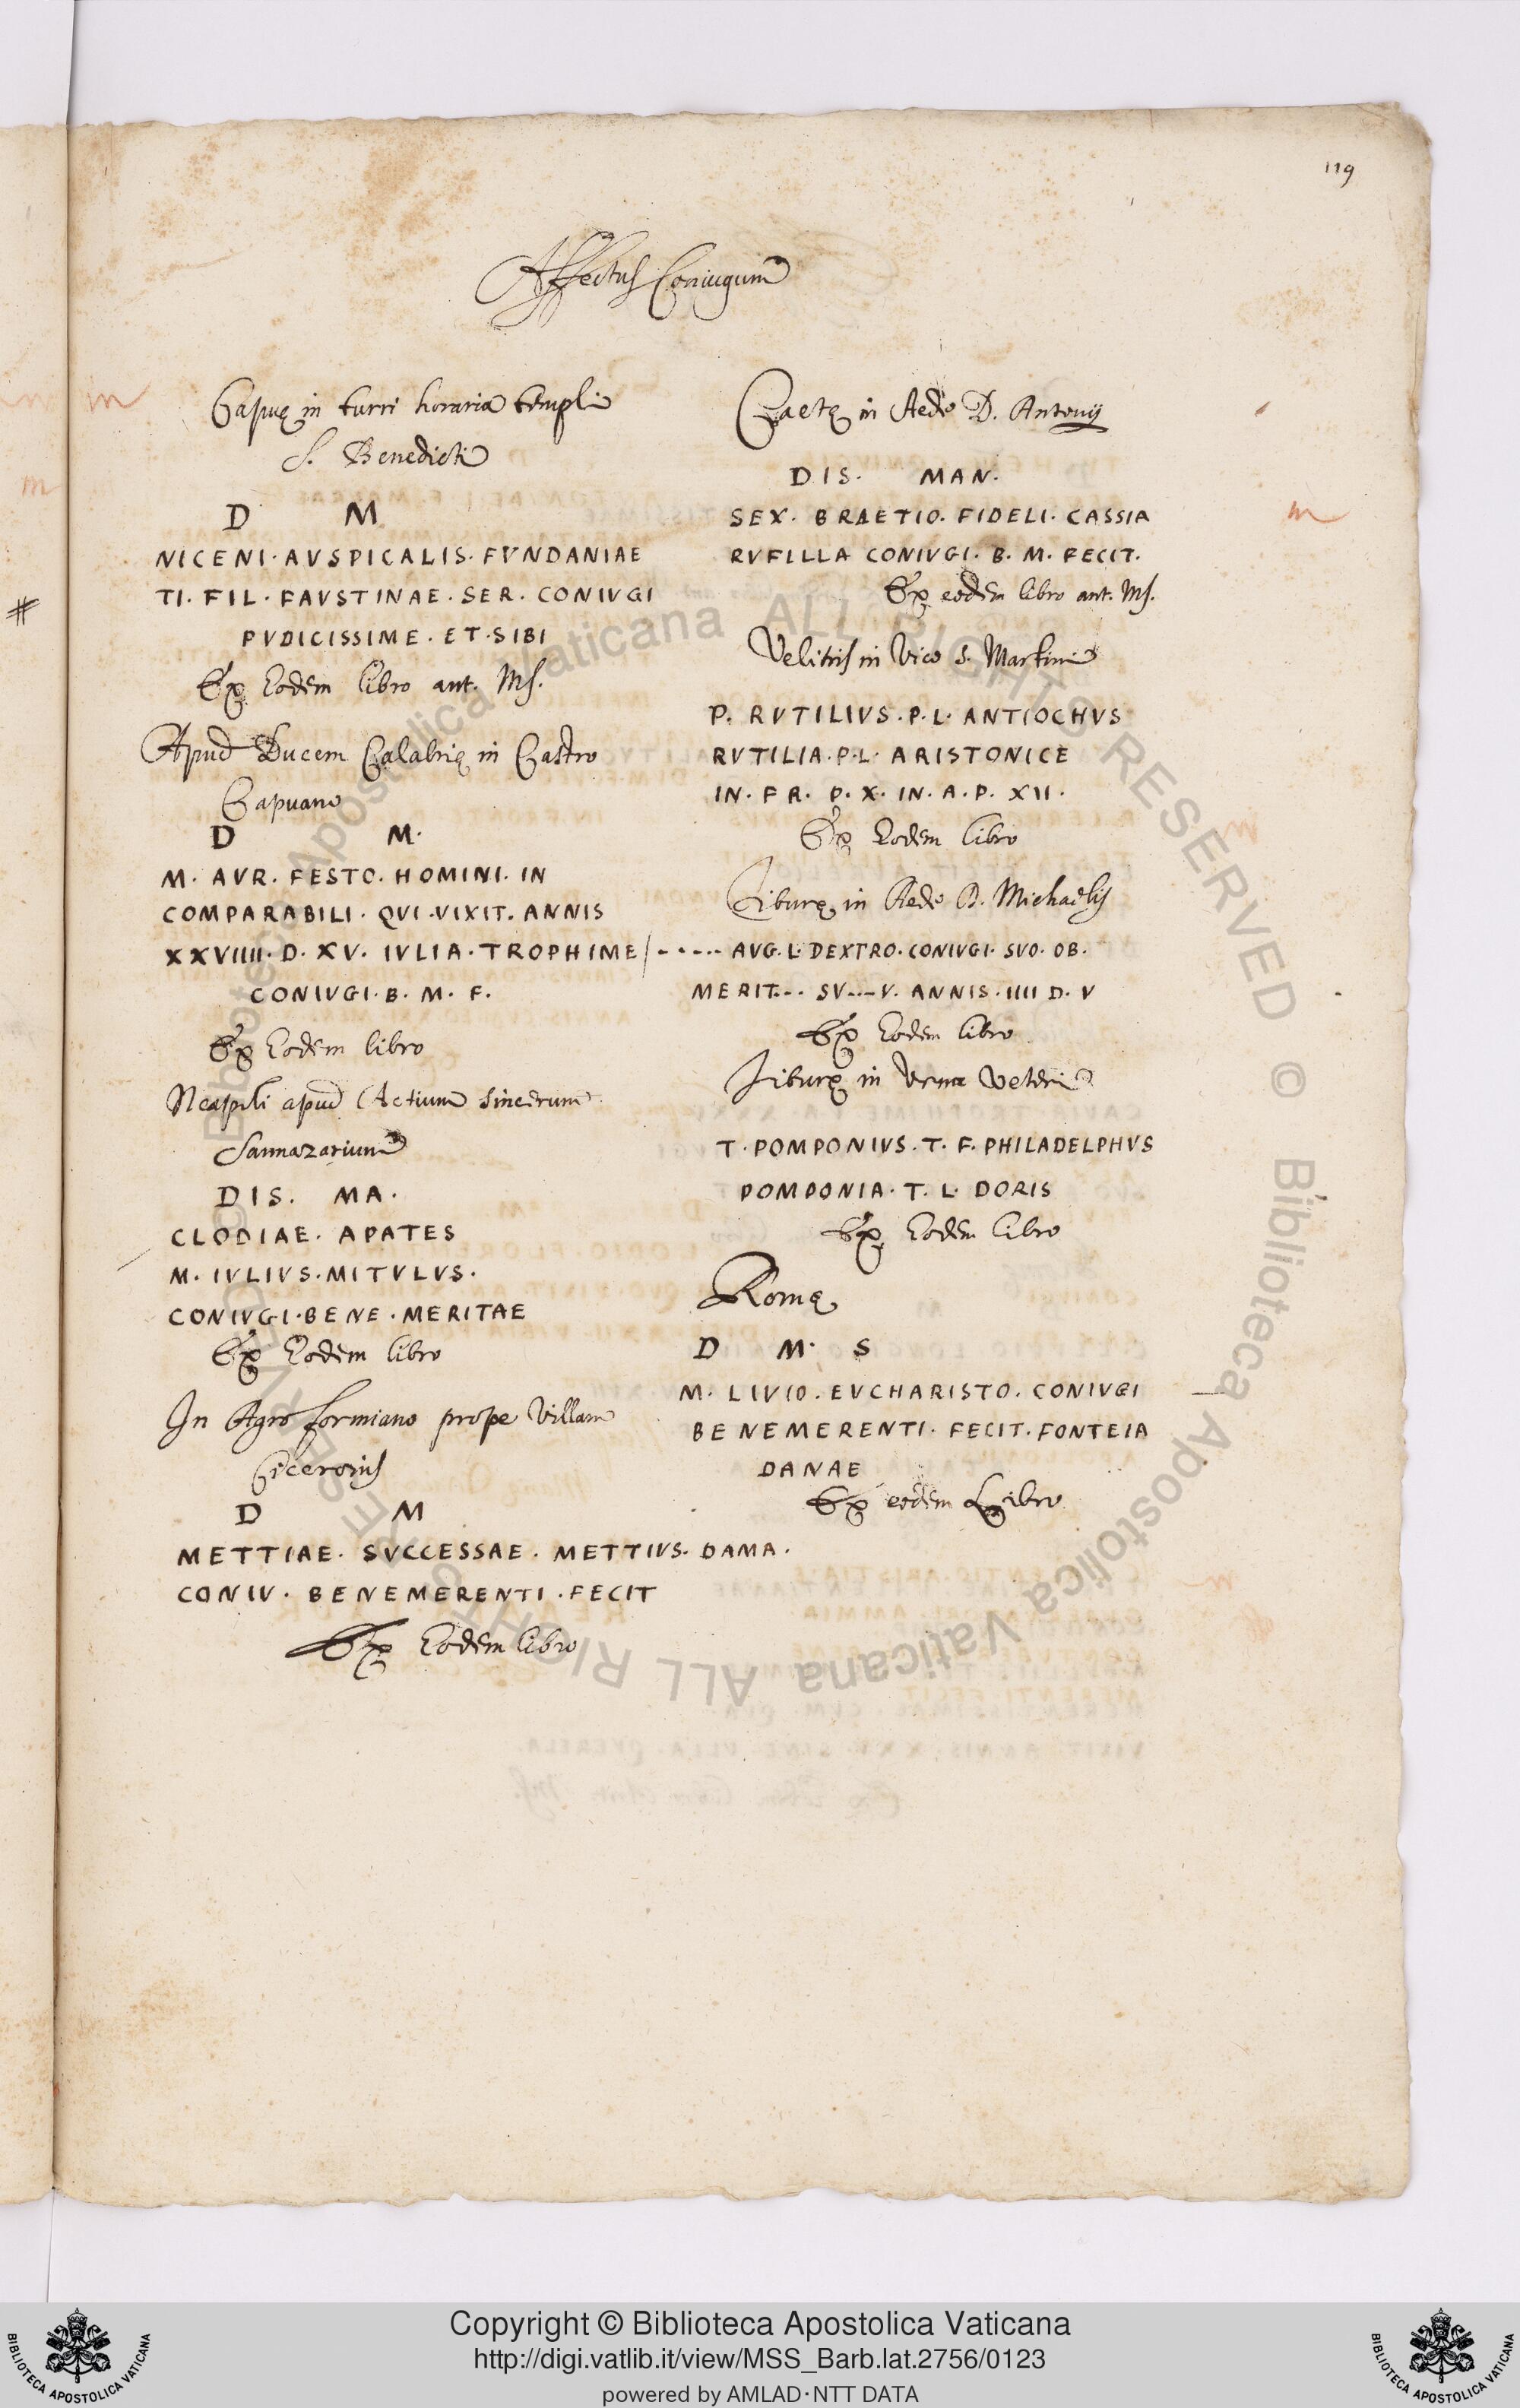 119
Affectus Coniugum
Capuę in turri horaria templi
S. Benedicti
D M
NICENI · AVSPICALIS · FVNDANIAE
TI · FIL · FAVSTINAE · SER · CONIVGI
PVDICISSIME · ET · SIBI
Ex Eodem libro ant. Ms.
Apud Ducem Calabrię in Castro
Capuano
D M ·
M · AVR · FESTO · HOMINI · IN
COMPARABILI · QVI · VIXIT · ANNIS
XXVIIII · D · XV · IVLIA · TROPHIME
CONIVGI · B · M · F ·
Ex Eodem libro
Neapoli apud Actium sincerum
Sannazarium
DIS · MA ·
CLODIAE · APATES
M · IVLIVS · MITVLVS ·
CONIVGI · BENE · MERITAE
Ex Eodem libro
In Agro formiano prope Villam
Ciceronis
D M
METTIAE · SVCCESSAE · METTIVS · DAMA ·
CONIV · BENEMERENTI · FECIT
Ex Eodem libro
Caetę in Aede D. Antonij
DIS · MAN ·
SEX · BRAETIO · FIDELI · CASSIA
RVFILLA CONIVGI · B · M · FECIT ·
Ex eodem libro ant. Ms.
Velitris in Vico S. Martini
P · RVTILIVS · P · L · ANTIOCHVS
RVTILIA · P · L · ARISTONICE
IN · FR · P · X · IN · A · P · XII ·
Ex Eodem libro
Tiburę in Aede D. Michaelis
/ - - - - - AVG · L · DEXTRO · CONIVGI · SVO · OB ·
MERIT - - - SV - - - V · ANNIS · IIII D · V
Ex Eodem libro
Tiburę in Vrna Veteri
T · POMPONIVS · T · F · PHILADELPHVS
POMPONIA · T · L · DORIS
Ex Eodem libro
Romę
D M · S
M · LIVIO · EVCHARISTO · CONIVGI
BENEMERENTI · FECIT · FONTEIA
DANAE
Ex eodem Libro
Biblioteca Apostolica Vaticana ALL RIGHTS RESERVED © Biblioteca Apostolica Vaticana ALL RIGHTS RESERVED ©
Copyright © Biblioteca Apostolica Vaticana
http://digi.vatlib.it/view/MSS_Barb.lat.2756/0123
powered by AMLAD·NTT DATA
BIBLIOTECA APOSTOLICA VATICANA
BIBLIOTECA APOSTOLICA VATICANA